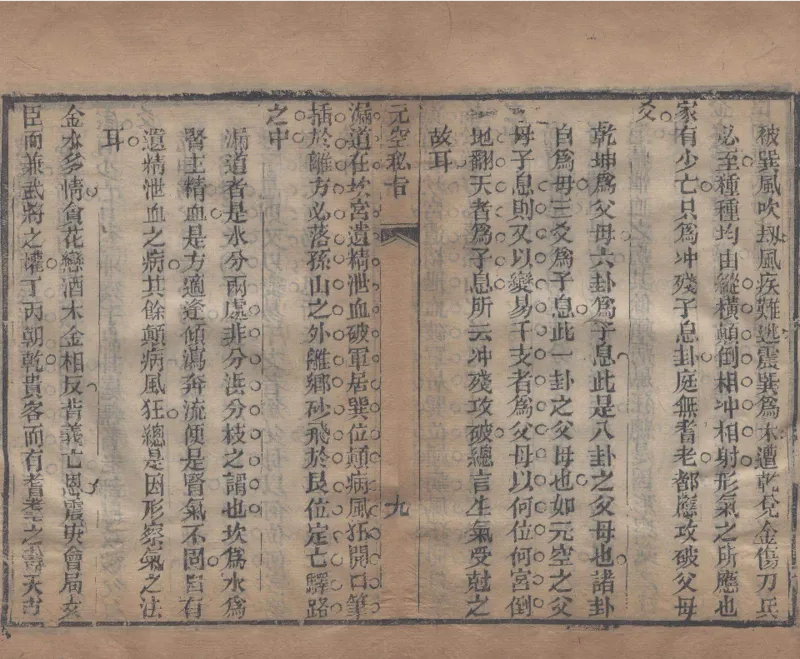 被巽風吹刼風疾難逃震巽爲木遭乾兌金傷刀兵
必至種種均由縱橫顛倒相冲相射形氣之所應也
家有少亡只爲冲殘子息卦庭無耆老都緣攻破父母
爻
乾坤爲父母六卦爲子息此是八卦之父母也諸卦
自爲母三爻爲子息此一卦之父母也如元空之父
母子息則又以變易干支者爲父母以何位何宮倒
地翻天者爲子息所云冲殘攻破總言生氣受尅之
故耳
元空秘旨
九
漏道在坎宮遺精泄血破軍居巽位顛病風狂開口筆
插於離方必落孫山之外離鄉砂飛於艮位定亡驛路
之中
漏道者是水分兩處非分浜分枝之謂也坎爲水爲
腎主精血是方適逢傾瀉奔流便是腎氣不固皆有
遺精泄血之病其餘顛病風狂總是因形察氣之注
耳
金水多情貪花戀酒木金相反背義亡恩震庚會局文
臣而兼武將之權丁丙朝乾貴客而有耆耋之壽天市